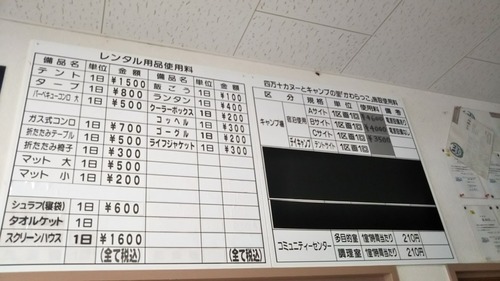 レンタル用品使用料
備品名 単位 金額 備品名 単位 金額
テント 1日 ¥1500 飯ごう 1日
タープ 1日 ¥800 ランタン 1日 ¥400
バーベキューコンロ 大 1日 ¥500 クーラーボックス 1日 ¥200
コッヘル 1日 ¥300
ガス式コンロ 1日 ¥700 ゴーグル 1日 ¥200
折たたみテーブル 1日 ¥500 ライフジャケット 1日 ¥300
折たたみ椅子 1日 ¥300
マット 大 1日 ¥500
マット 小 1日 ¥200
シュラフ(寝袋) 1日 ¥600
タオルケット 1日
スクリーンハウス 1日 ¥1600
(全て税込) (全て税込)
四万十カヌーとキャンプの里"かわらっこ"施設使用料
区分 規格 単位 使用料 備考
キャンプ場 宿泊使用 Aサイト 1区画1回
Bサイト 1区画1回 ¥4000
Cサイト 1区画1回
デイキャンプ テントサイト 1区画1回
コミュニティーセンター 多目的室 1室1時間当たり 210円
調理室 1室1時間当たり 210円